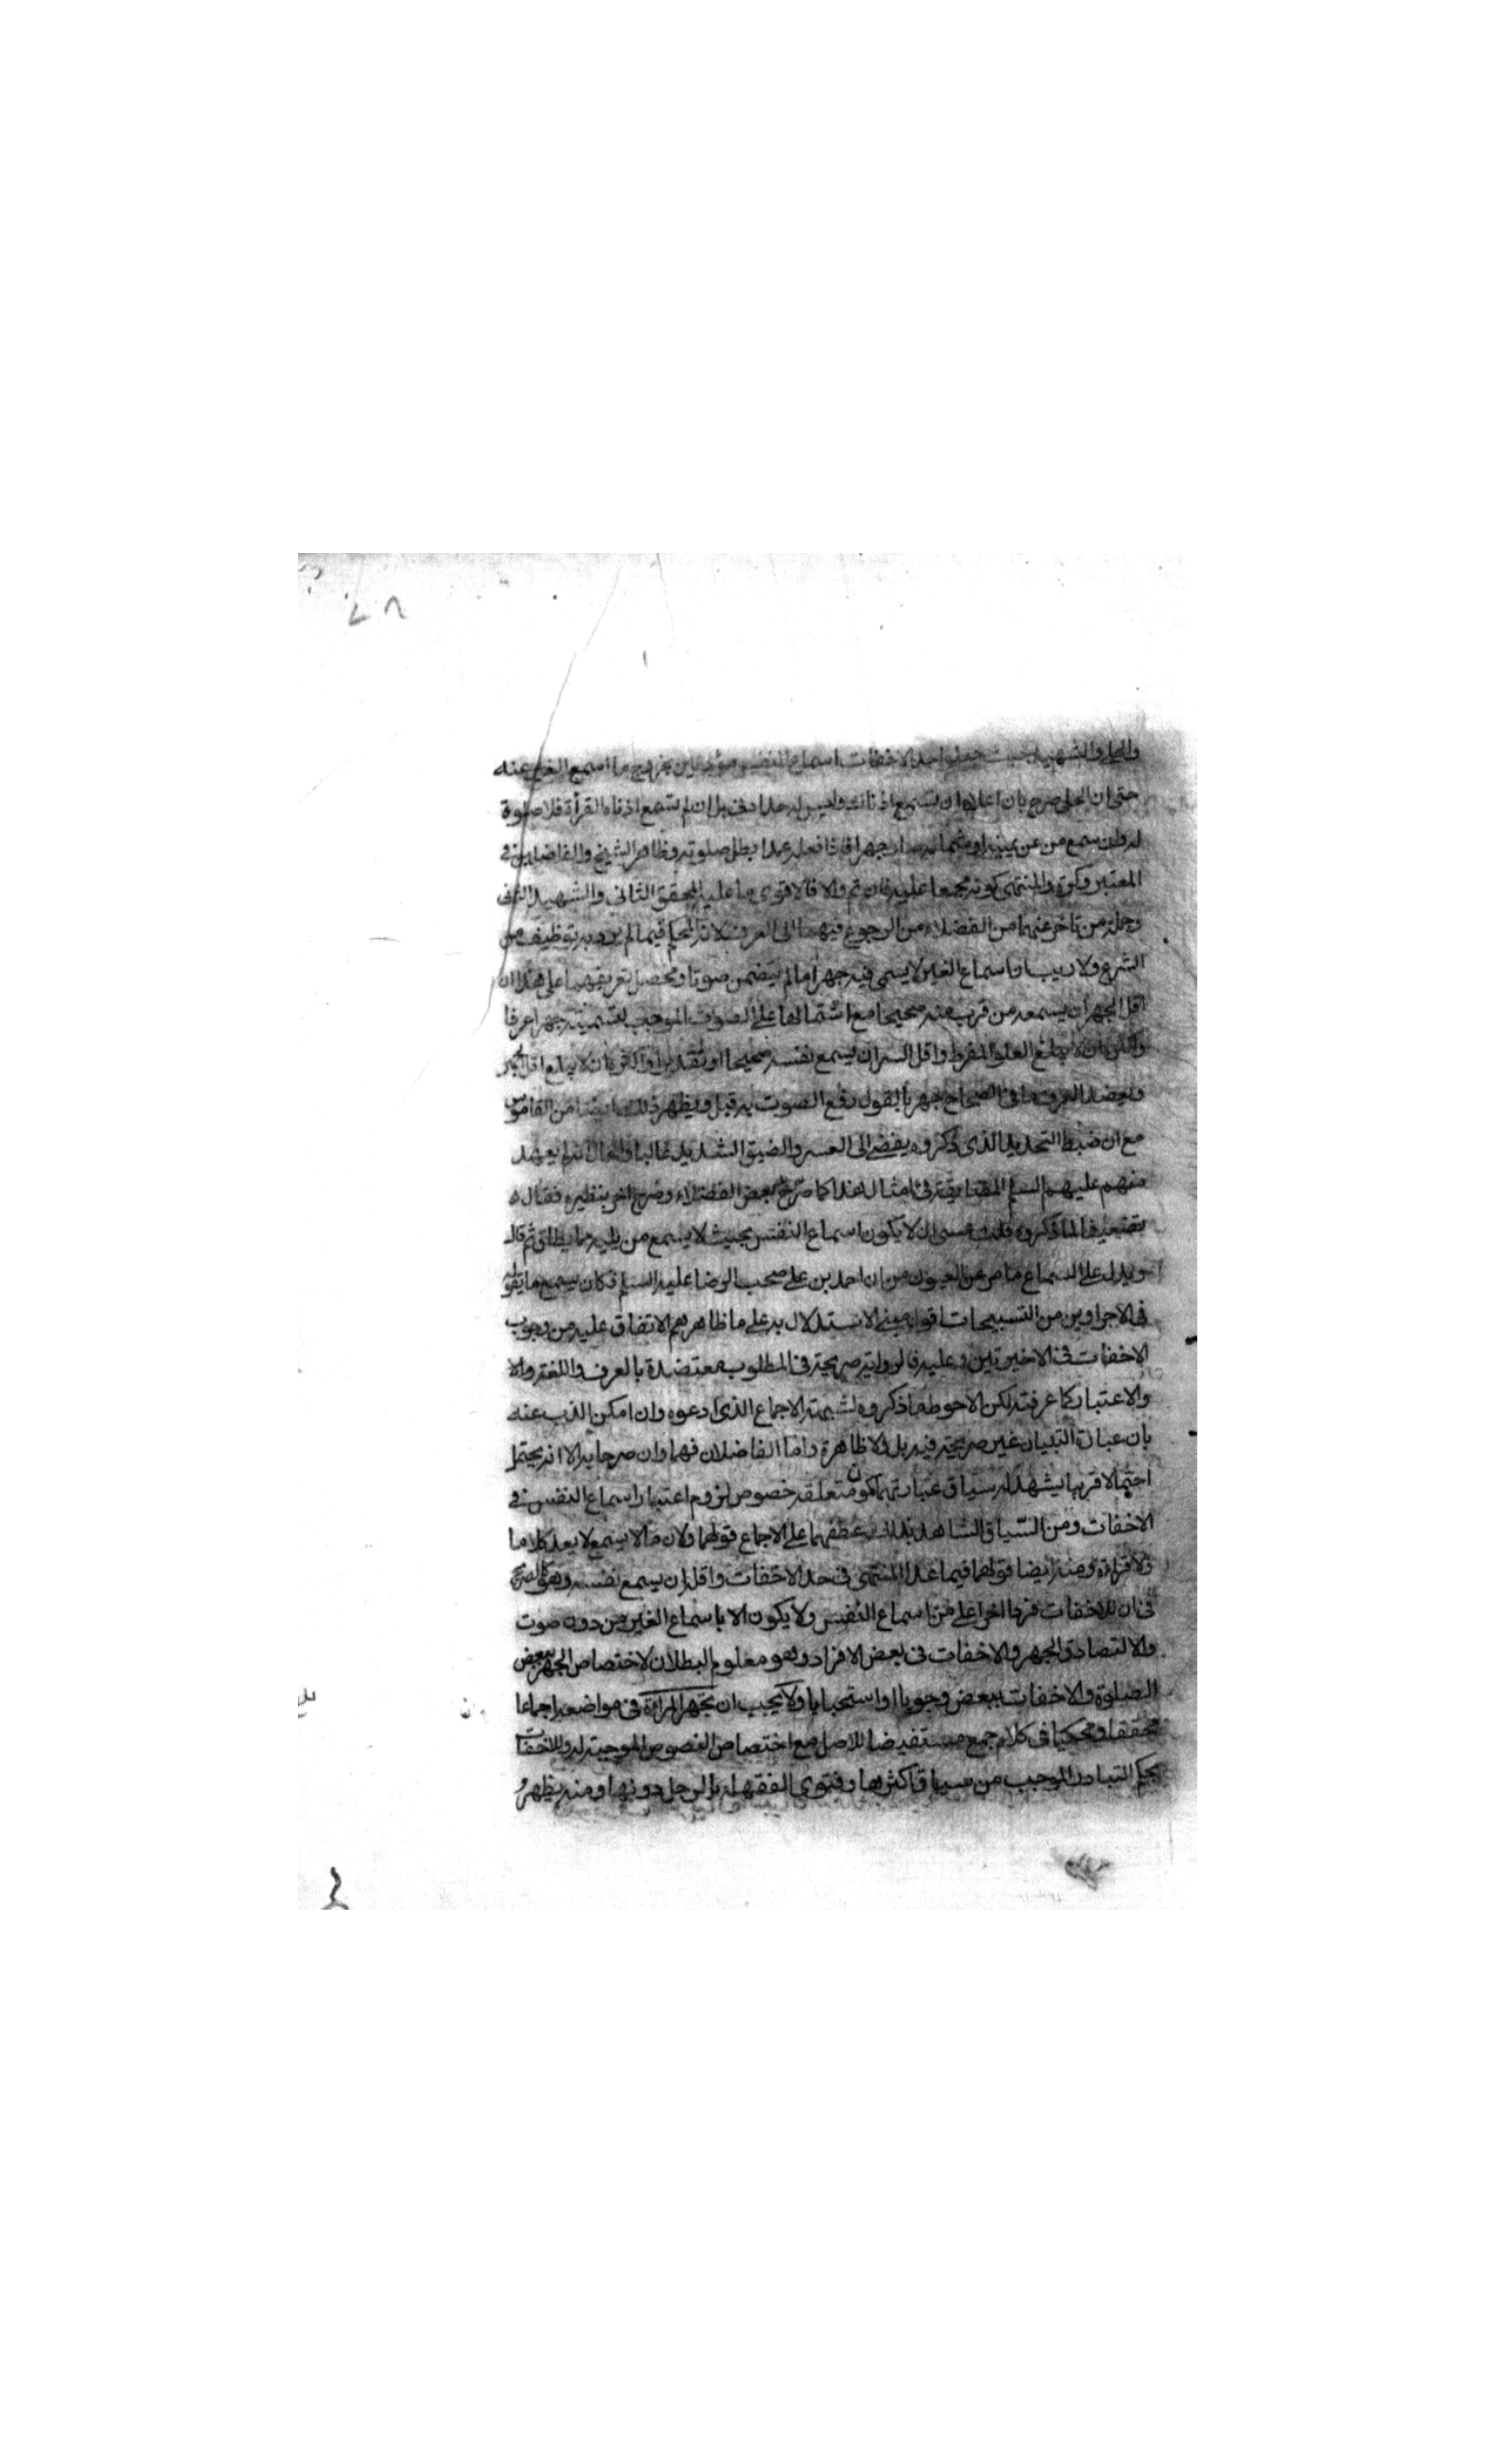 والحلي والشهيد حيث جعلوا حد الاخفات اسماع النفس مؤذنا بخروج ما اسمع الغير عنه
حتى ان الحلي صرح بان اعلاه ان تسمع اذناك وليس له حد ادنى بل ان لم تسمع اذناه القرأة فلا صلوة
له وان سمع من عن يمينه او شماله صار جهرا فاذا فعله عمدا بطل صلوته وظاهر الشيخ والفاضلين في
المعتبر وكره والمنتهى كونه مجمعا عليه فان تم والا فالاقوى ما عليه المحقق الثاني والشهيد الثاني
وجملة من تاخر عنهما من الفضلاء من الرجوع فيهما الى العرف لانه المحكم فيما لم يرد به توظيف من
الشرع ولا ريب ان اسماع الغير لا يسمى فيه جهرا ما لم يتضمن صوتا ومحصل تعريفهما على هذا ان
اقل الجهر ان يسمعه من قرب منه صحيحا مع اشتمالها على الصوت الموجب لتسميته جهرا عرفا
واكثره ان لا يبلغ العلو المفرط واقل السر ان يسمع نفسه صحيحا او تقديرا واكثره ان لا يبلغ اقل الجهر
ويعضد العرف ما في الصحاح جهر بالقول رفع الصوت به قيل ويظهر ذلك ايضا من القاموس
مع ان ضبط التحديد الذى ذكروه يفضى الى العسر والضيق الشديد غالبا والحال انه لم يعهد
منهم عليهم السلم المضايقة في امثال هذا كما صرح بعض الفضلاء وصرح اخر بنظيره فقال
تضعيفا لما ذكروه قلت عسى ان لا يكون اسماع النفس بحيث لا يسمع من يليه مما يطاق ثم قال
ويدل على السماع ما مر عن العيون من ان احمد بن علي صحب الرضا عليه السلم فكان يسمع ما يقوله
في الاخراوين من التسبيحات اقول مبنى الاستدلال به على ما ظاهرهم الاتفاق عليه من وجوب
الاخفات في الاخيرتين وعليه فالرواية صريحة في المطلوب معتضدة بالعرف واللغة والا
والاعتبار كما عرفته لكن الاحوط ما ذكروه لشبهة الاجماع الذى ادعوه وان امكن الذب عنه
بان عبارة التبيان غير صريحة فيه بل ولا ظاهرة واما الفاضلان فهما وان صرحا به الا انه يحتمل
احتمالا قريبا يشهد له سياق عبارتهما كون متعلقه خصوص لزوم اعتبار اسماع النفس في
الاخفات ومن السياق الشاهد بذلك عطفهما على الاجماع قولهما ولان ما لا يسمع لا يعد كلاما
ولا قراءة ومنه ايضا قولهما فيما عدا المنتهى في حد الاخفات واقله ان يسمع نفسه وهو كالصريح
في ان للاخفات فردا اخر اعلى من اسماع النفس ولا يكون الا باسماع الغير من دون صوت
والا لتصادق الجهر والاخفات في بعض الافراد وهو معلوم البطلان لاختصاص الجهر ببعض
الصلوة والاخفات ببعض وجوبا او استحبابا ولا يجب ان تجهر المراة في مواضعه اجماعا
محققا ومحكيا في كلام جمع مستفيضا للاصل مع اختصاص النصوص الموجبة له وللاخفات
بحكم التبادر الموجب من سياق اكثرها وفتوى الفقهاء بالرجل دونها ومنه يظهر و